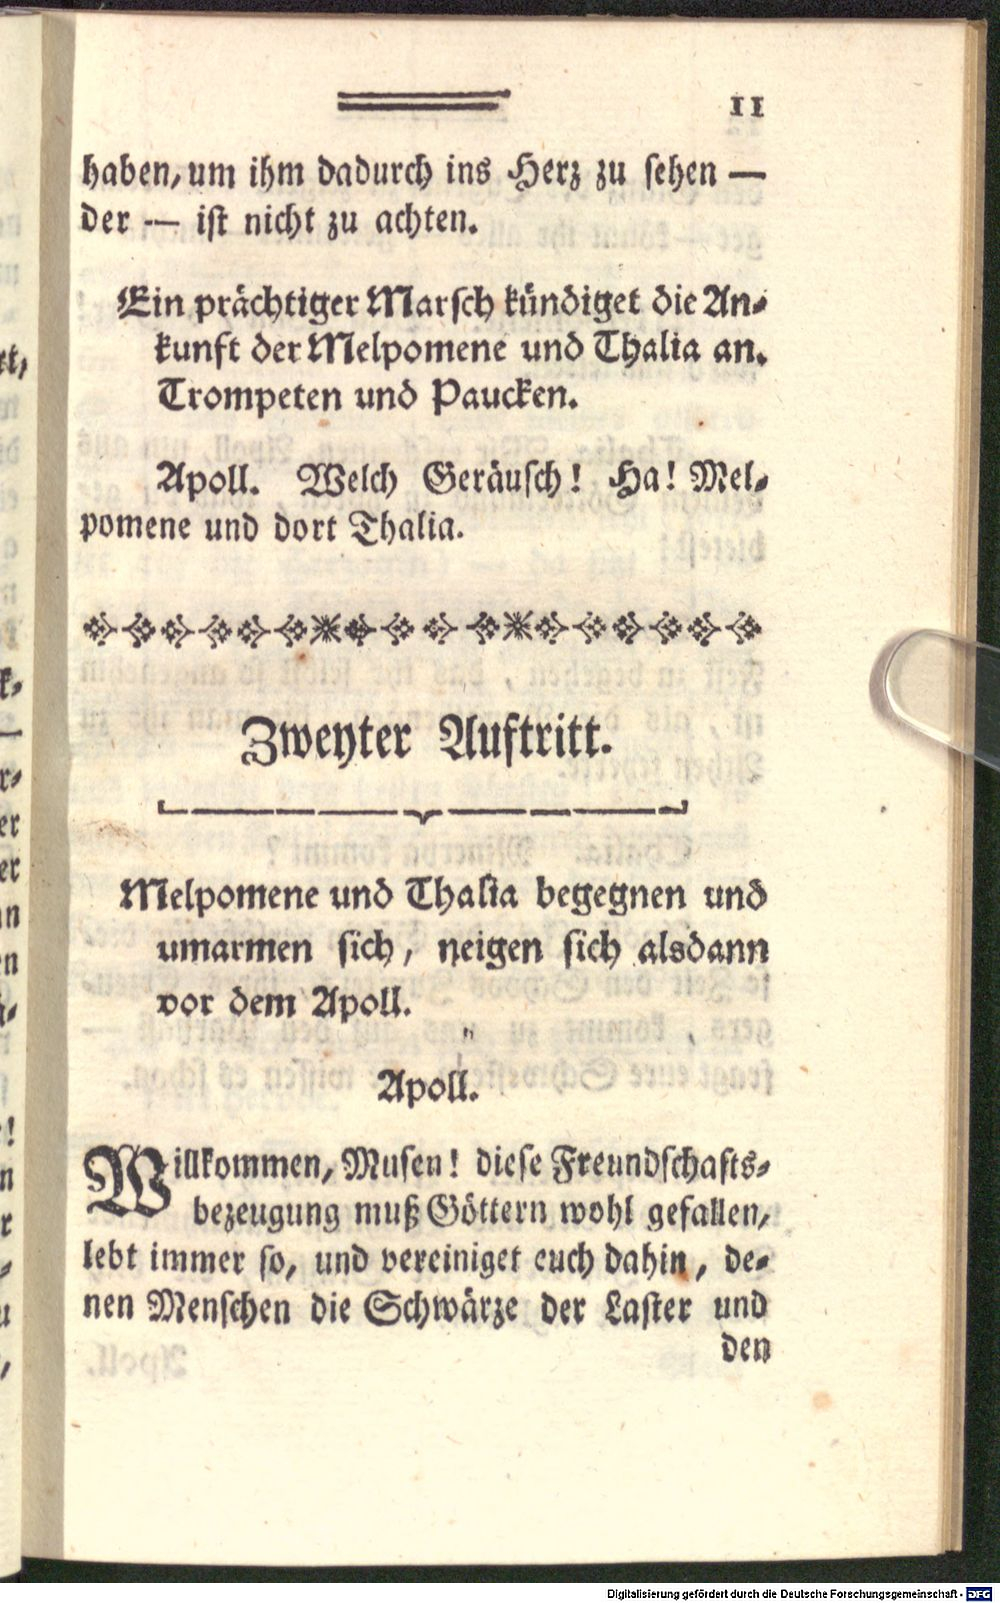 11
haben, um ihm dadurch ins Herz zu sehen —
der — ist nicht zu achten.
Ein prächtiger Marsch kündiget die An-
kunft der Melpomene und Thalia an.
Trompeten und Paucken.
Apoll. Welch Geräusch! Ha! Mel-
pomene und dort Thalia.
Zweyter Auftritt.
Melpomene und Thalia begegnen und
umarmen sich, neigen sich alsdann
vor dem Apoll.
Apoll.
Willkommen, Musen! diese Freundschafts-
bezeugung muß Göttern wohl gefallen,
lebt immer so, und vereiniget euch dahin, de-
nen Menschen die Schwärze der Laster und
den
Digitalisierung gefördert durch die Deutsche Forschungsgemeinschaft - DFG